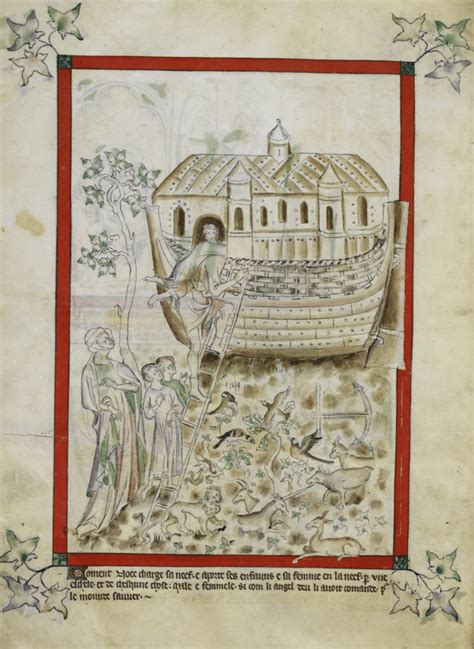 Coment Noee charge sa neef e aporte ses enfauns e sa femme en la neef p vne
eschele et de chescune chose male e femmele si com li angel deu li auoit comande p
le mounde sauuer